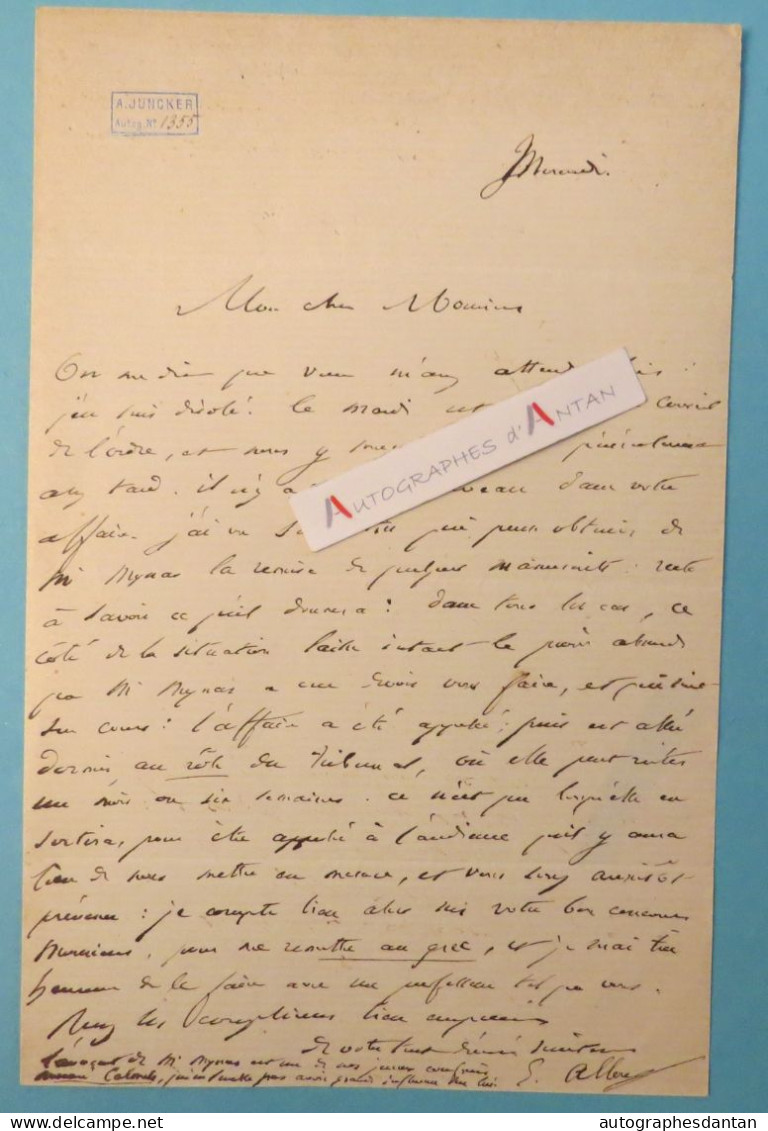 A. JUNCKER
Autog. No 1355
Mercredi.
Mon cher Monsieur
On me dit que vous m'avez attendu
j'en suis désolé. le mardi est Conseil
de l'ordre, et nous y
tard. il n'y a dans votre
affaire. j'ai vu qui peut obtenir de
Mr Mynas la remise de quelques manuscrits : reste
à savoir ce qu'il donnera : dans tous les cas, ce
côté de la situation laisse intact le procès
que Mr Mynas a cru devoir vous faire, et qui suit
son cours : l'affaire a été appelée ; puis est allée
dormir au rôle du Tribunal, où elle peut rester
un mois ou six semaines. ce n'est que lorsqu'elle en
sortira, pour être appelée à l'audience qu'il y aura
lieu de nous mettre en mesure, et vous serez aussitôt
prévenu : je compte bien alors sur votre bon concours
Monsieur, pour me remettre au grec, et je serai bien
heureux de le faire avec un professeur tel que vous.
Recevez les compliments bien empressés
de votre tout dévoué serviteur
l'avocat de Mr Mynas est un de nos jeunes confrères
grande influence sur lui.
E. Allou
AUTOGRAPHES d'ANTAN
autographesdantan